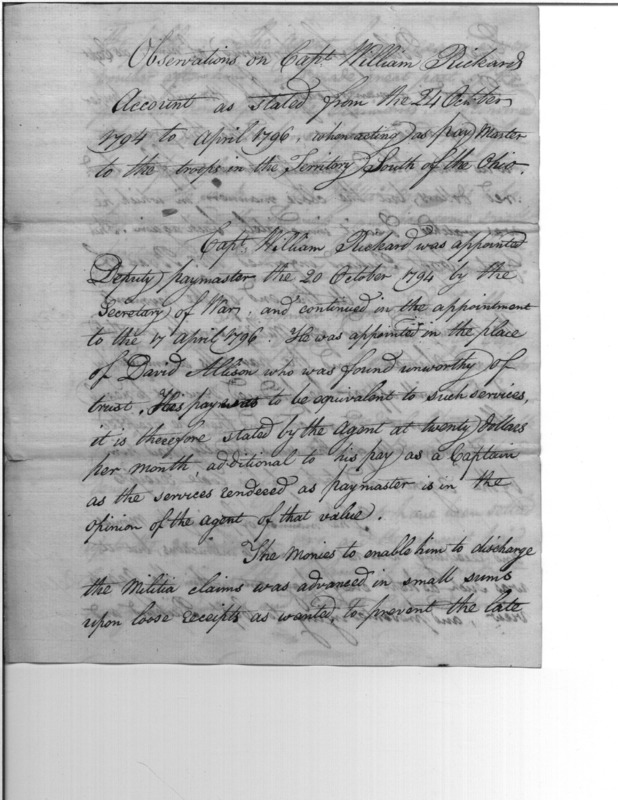 Observations on Capt William Rickard
Account as stated from the 24 October
1794 to April 1796, when acting as pay Master
to the troops in the Territory South of the Ohio.
Capt. William Rickard was appointed
Deputy paymaster the 20 October 1794 by the
Secretary of War, and continued in the appointment
to the 17 April 1796. He was appointed in the place
of David Allison who was found unworthy of
trust. His pay was to be equivalent to such services,
it is therefore stated by the Agent at twenty dollars
per month additional to his pay as a Captain
as the services rendered as paymaster is in the
opinion of the agent of that value.
The Monies to enable him to discharge
the Militia claims was advanced in small sums
upon loose receipts as wanted, to prevent the late